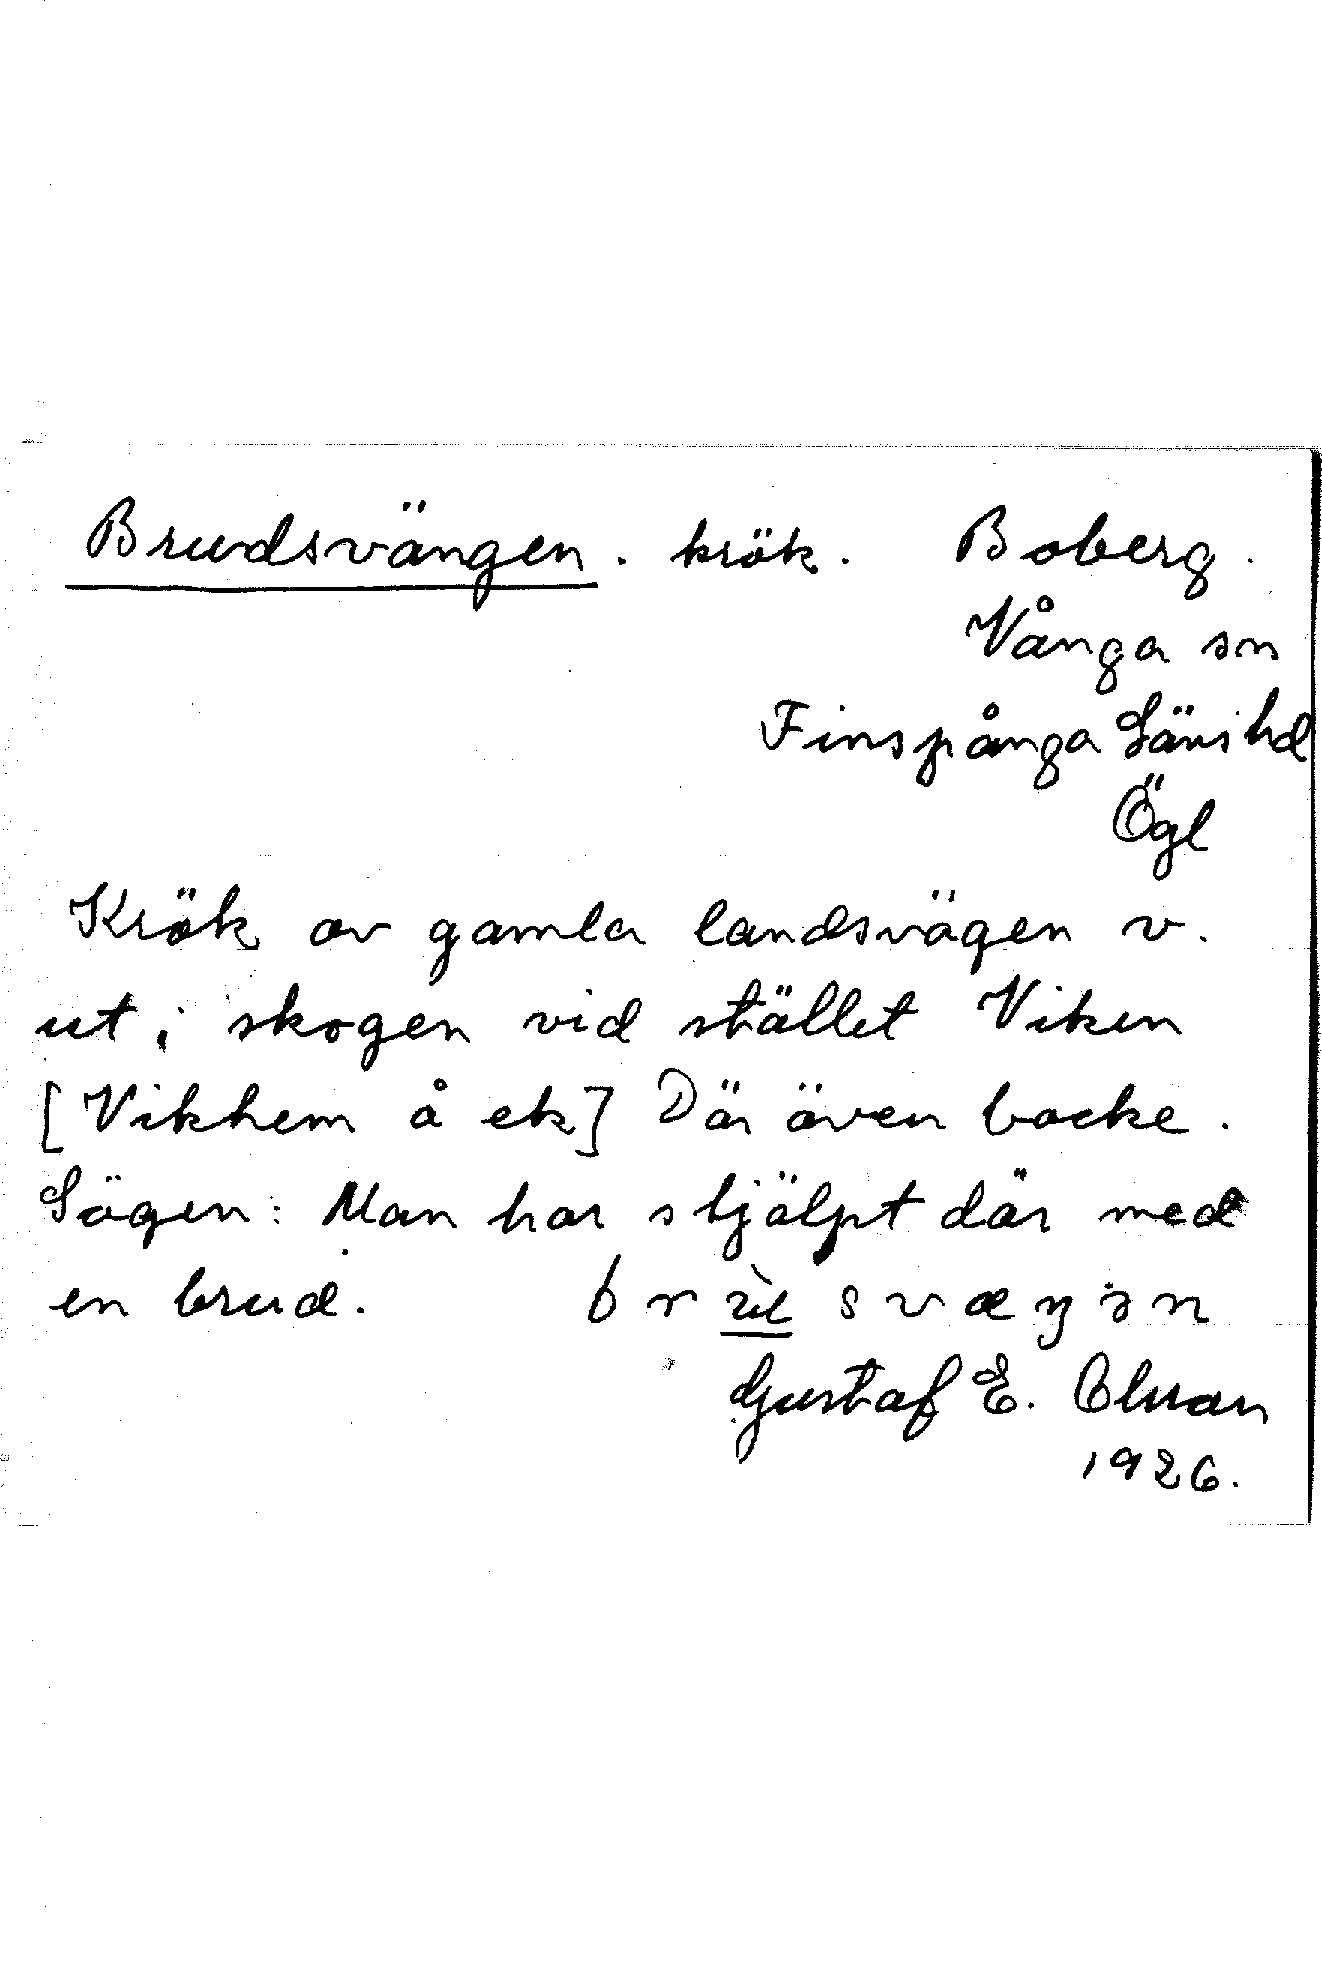 Brudsvängen. krök. Boberg.
Vånga sn
Finspånga Läns hd
Ögl
Krök av gamla landsvägen v.
ut i skogen vid stället Viken
[Vikhem å ek] Där även backe.
Sägen: Man har stjälpt där med
en brud.
Gustaf E. Olsson
1926.